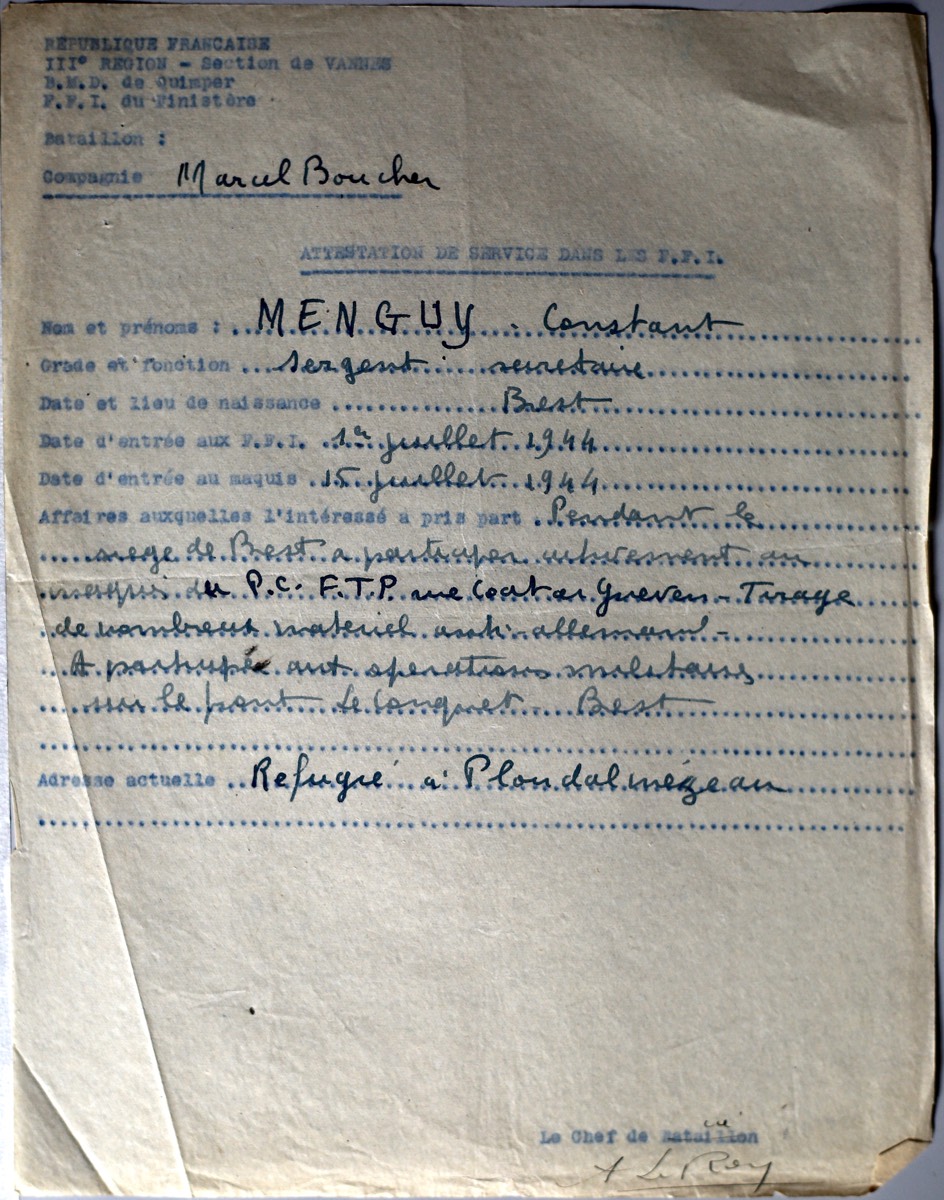 REPUBLIQUE FRANCAISE
III° REGION - Section de VANNES
B.M.D. de Quimper
F.F.I. du Finistère
Bataillon :
Compagnie Marcel Boucher
ATTESTATION DE SERVICE DANS LES F.F.I.
Nom et prénoms : MENGUY . Constant
Grade et fonction sergent : secretaire
Date et lieu de naissance Brest
Date d'entrée aux F.F.I. 1er juillet 1944
Date d'entrée au maquis 15 juillet 1944
Affaires auxquelles l'intéressé a pris part Pendant le
siege de Brest a participer activement au
maquis du P.C. F.T.P. rue Coat ar Gueven - Tirage
de nombreux materiel anti-allemand -
A participé aux operations militaires
sur le front Le Conquet - Brest
Adresse actuelle Refugié à Ploudalmézeau
Le Chef de Bataillon
A Le Roy